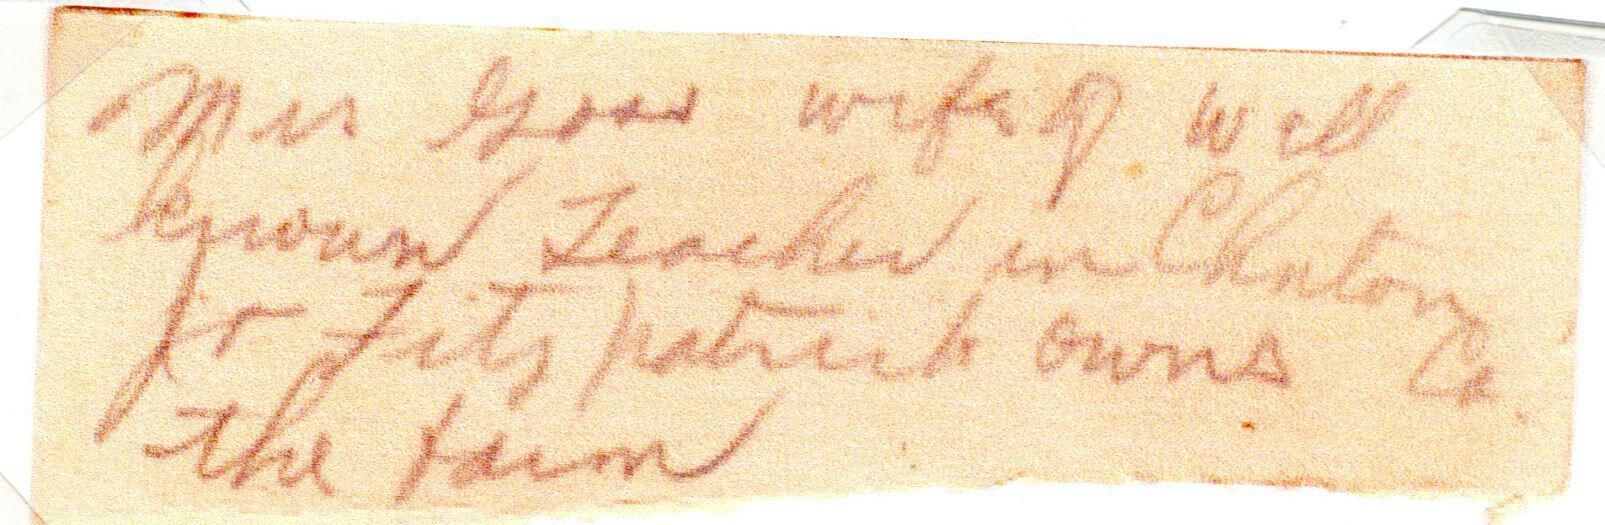 Mrs Goss wife of well
known Teacher in Clinton
Jo Fitzpatrick owns Co.
the farm